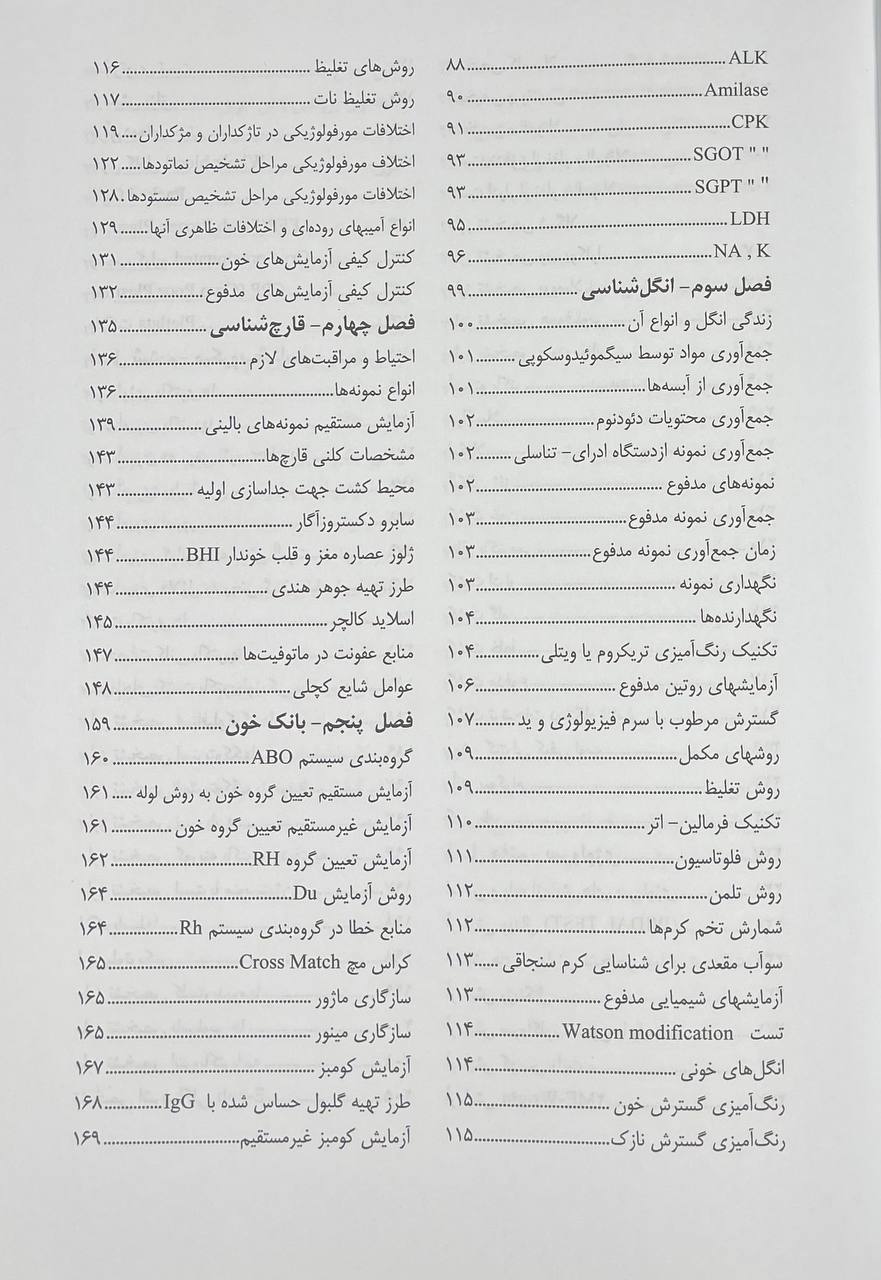 ALK ........ ۸۸
Amilase ........ ۹۰
CPK ........ ۹۱
SGOT " " ........ ۹۳
SGPT " " ........ ۹۳
LDH ........ ۹۵
NA , K ........ ۹۶
فصل سوم– انگل‌شناسی ........ ۹۹
زندگی انگل و انواع آن ........ ۱۰۰
جمع‌آوری مواد توسط سیگموئیدوسکوپی ........ ۱۰۱
جمع‌آوری از آبسه‌ها ........ ۱۰۱
جمع‌آوری محتویات دئودنوم ........ ۱۰۲
جمع‌آوری نمونه ازدستگاه ادرای– تناسلی ........ ۱۰۲
نمونه‌های مدفوع ........ ۱۰۲
جمع‌آوری نمونه مدفوع ........ ۱۰۳
زمان جمع‌آوری نمونه مدفوع ........ ۱۰۳
نگهداری نمونه ........ ۱۰۳
نگهدارنده‌ها ........ ۱۰۴
تکنیک رنگ‌آمیزی تریکروم یا ویتلی ........ ۱۰۴
آزمایشهای روتین مدفوع ........ ۱۰۶
گسترش مرطوب با سرم فیزیولوژی و ید ........ ۱۰۷
روشهای مکمل ........ ۱۰۹
روش تغلیظ ........ ۱۰۹
تکنیک فرمالین– اتر ........ ۱۱۰
روش فلوتاسیون ........ ۱۱۱
روش تلمن ........ ۱۱۲
شمارش تخم کرم‌ها ........ ۱۱۲
سوآب مقعدی برای شناسایی کرم سنجاقی ...... ۱۱۳
آزمایشهای شیمیایی مدفوع ........ ۱۱۳
تست Watson modification ........ ۱۱۴
انگل‌های خونی ........ ۱۱۴
رنگ‌آمیزی گسترش خون ........ ۱۱۵
رنگ‌آمیزی گسترش نازک ........ ۱۱۵
روش‌های تغلیظ ........ ۱۱۶
روش تغلیظ نات ........ ۱۱۷
اختلافات مورفولوژیکی در تاژکداران و مژکداران .... ۱۱۹
اختلاف مورفولوژیکی مراحل تشخیص نماتودها ..... ۱۲۲
اختلافات مورفولوژیکی مراحل تشخیص سستودها . ۱۲۸
انواع آمیبهای روده‌ای و اختلافات ظاهری آنها ....... ۱۲۹
کنترل کیفی آزمایش‌های خون ........ ۱۳۱
کنترل کیفی آزمایش‌های مدفوع ........ ۱۳۲
فصل چهارم– قارچ‌شناسی ........ ۱۳۵
احتیاط و مراقبت‌های لازم ........ ۱۳۶
انواع نمونه‌ها ........ ۱۳۶
آزمایش مستقیم نمونه‌های بالینی ........ ۱۳۹
مشخصات کلنی قارچ‌ها ........ ۱۴۳
محیط کشت جهت جداسازی اولیه ........ ۱۴۳
سابرو دکستروزآگار ........ ۱۴۴
ژلوز عصاره مغز و قلب خوندار BHI ........ ۱۴۴
طرز تهیه جوهر هندی ........ ۱۴۴
اسلاید کالچر ........ ۱۴۵
منابع عفونت در ماتوفیت‌ها ........ ۱۴۷
عوامل شایع کچلی ........ ۱۴۸
فصل پنجم– بانک خون ........ ۱۵۹
گروه‌بندی سیستم ABO ........ ۱۶۰
آزمایش مستقیم تعیین گروه خون به روش لوله ..... ۱۶۱
آزمایش غیرمستقیم تعیین گروه خون ........ ۱۶۱
آزمایش تعیین گروه RH ........ ۱۶۲
روش آزمایش Du ........ ۱۶۴
منابع خطا در گروه‌بندی سیستم Rh ........ ۱۶۴
کراس مچ Cross Match ........ ۱۶۵
سازگاری ماژور ........ ۱۶۵
سازگاری مینور ........ ۱۶۵
آزمایش کومبز ........ ۱۶۷
طرز تهیه گلبول حساس شده با IgG ........ ۱۶۸
آزمایش کومبز غیرمستقیم ........ ۱۶۹